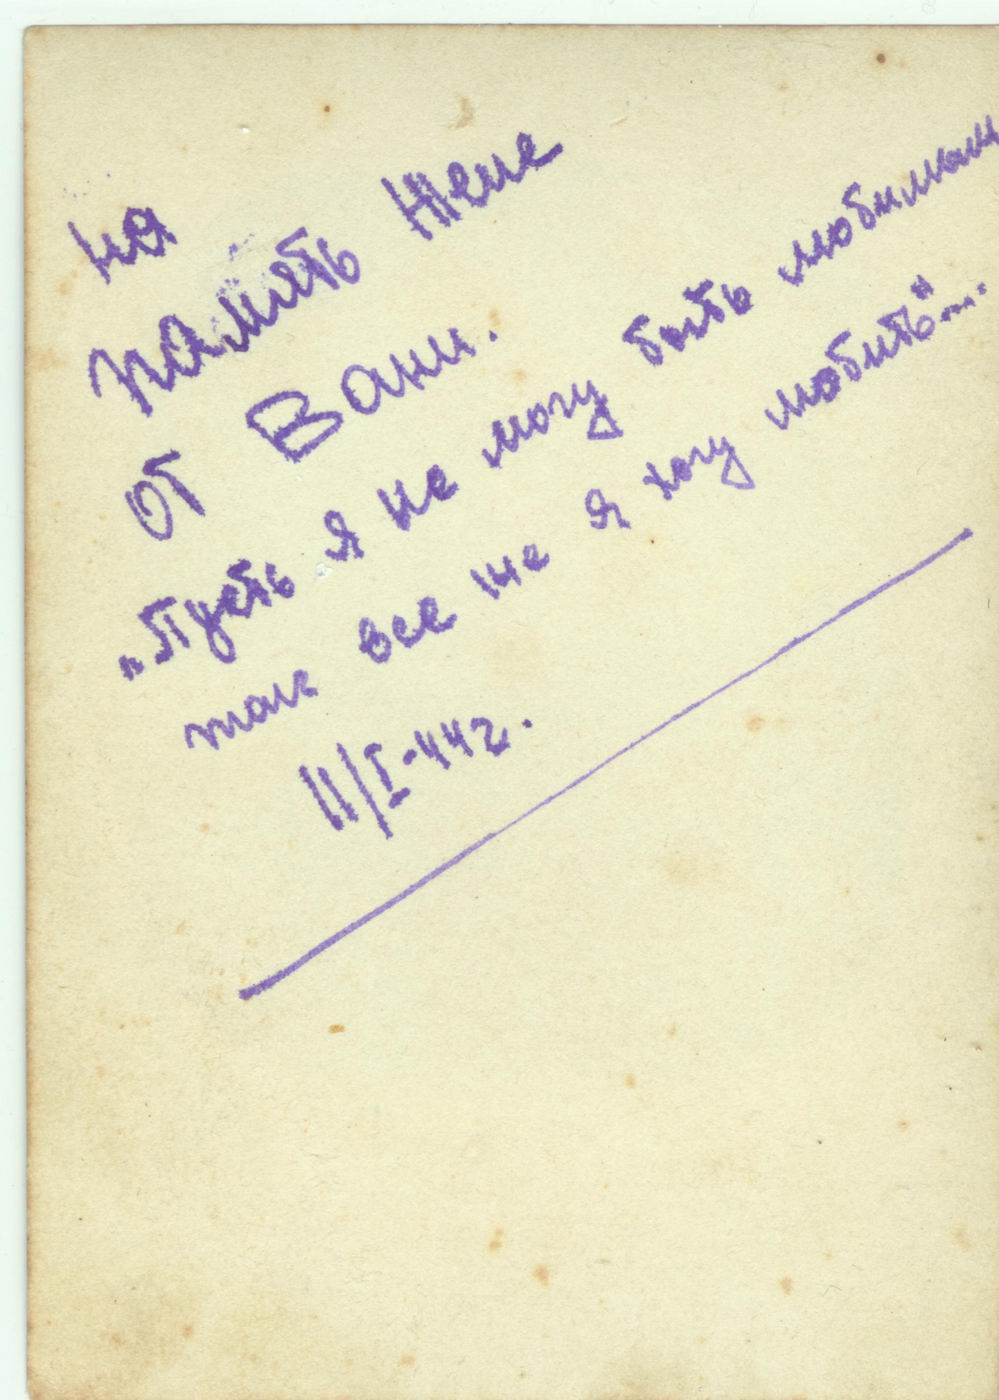 на
память Жене
от Вани.
„Пусть я не могу быть любимым
так все же я хочу любить"...
11/I-44г.